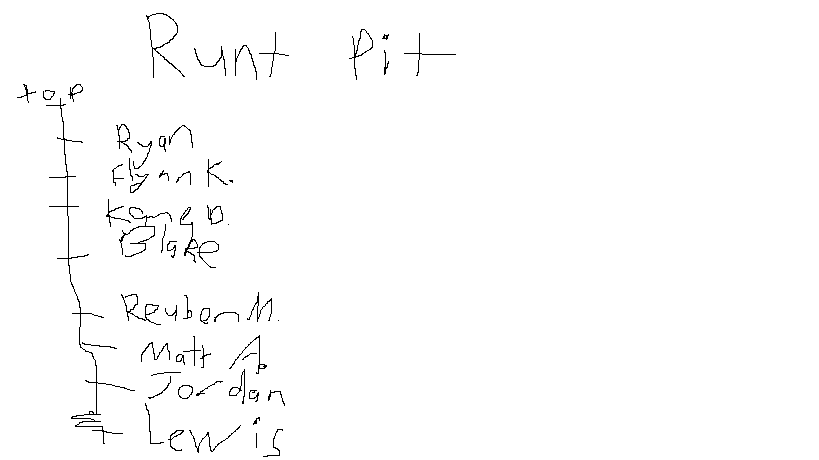 Runt Pit
top
Ryan
Flynn K.
Kane D.
Blake
Reuben M.
Matt A.
Jordan
Lewis